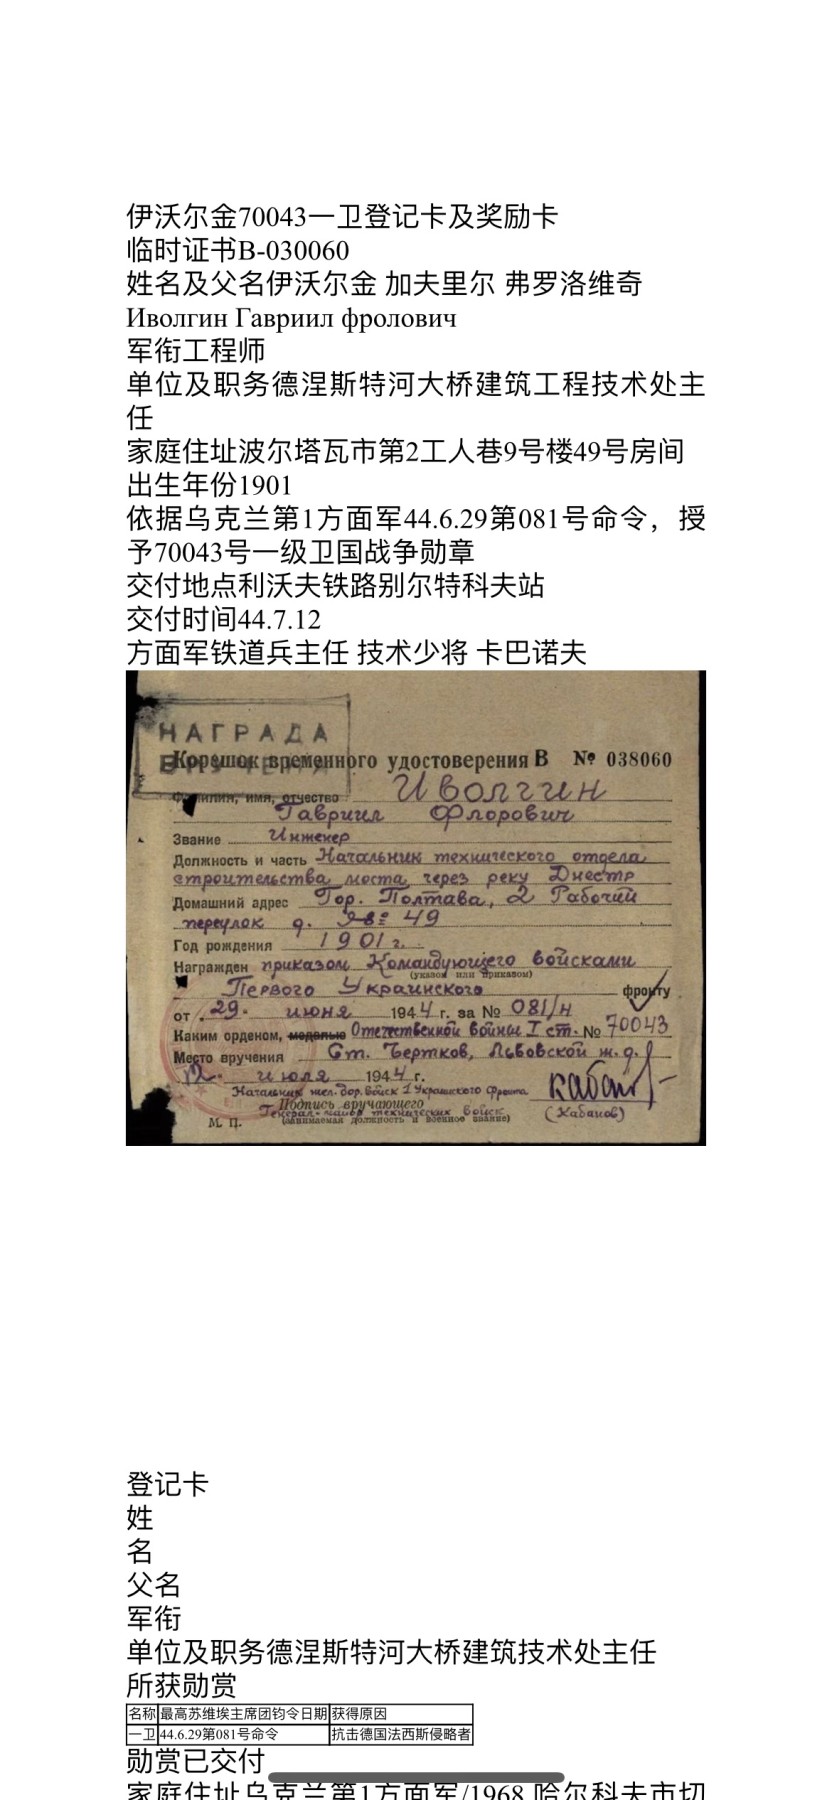 伊沃尔金70043一卫登记卡及奖励卡
临时证书B-030060
姓名及父名伊沃尔金 加夫里尔 弗罗洛维奇
Иволгин Гавриил фролович
军衔工程师
单位及职务德涅斯特河大桥建筑工程技术处主
任
家庭住址波尔塔瓦市第2工人巷9号楼49号房间
出生年份1901
依据乌克兰第1方面军44.6.29第081号命令，授
予70043号一级卫国战争勋章
交付地点利沃夫铁路别尔特科夫站
交付时间44.7.12
方面军铁道兵主任 技术少将 卡巴诺夫
НАГРАДА
Корешок временного удостоверения В № 038060
Фамилия, имя, отчество Иволгин
Гавриил Флорович
Звание Инженер
Должность и часть Начальник технического отдела
строительства моста через реку Днестр
Домашний адрес Гор. Полтава, 2 Рабочий
переулок д. 49
Год рождения 1901 г.
Награжден приказом Командующего войсками
(указом или приказом)
Первого Украинского фронту
от 29. июня 1944 г. за № 081/н
Каким орденом, медалью Отечественной войны I ст. № 70043
Место вручения Ст. Чертков, Львовской ж.д.
12. июля 1944 г.
Начальник жел. дор. войск 1 Украинского фронта
Подпись вручающего
Генерал-майор технических войск
(занимаемая должность и военное звание)
(Кабанов)
М. П.
登记卡
姓
名
父名
军衔
单位及职务德涅斯特河大桥建筑技术处主任
所获勋赏
名称 最高苏维埃主席团钧令日期 获得原因
一卫 44.6.29第081号命令 抗击德国法西斯侵略者
勋赏已交付
家庭住址乌克兰第1方面军/1968 哈尔科夫市切